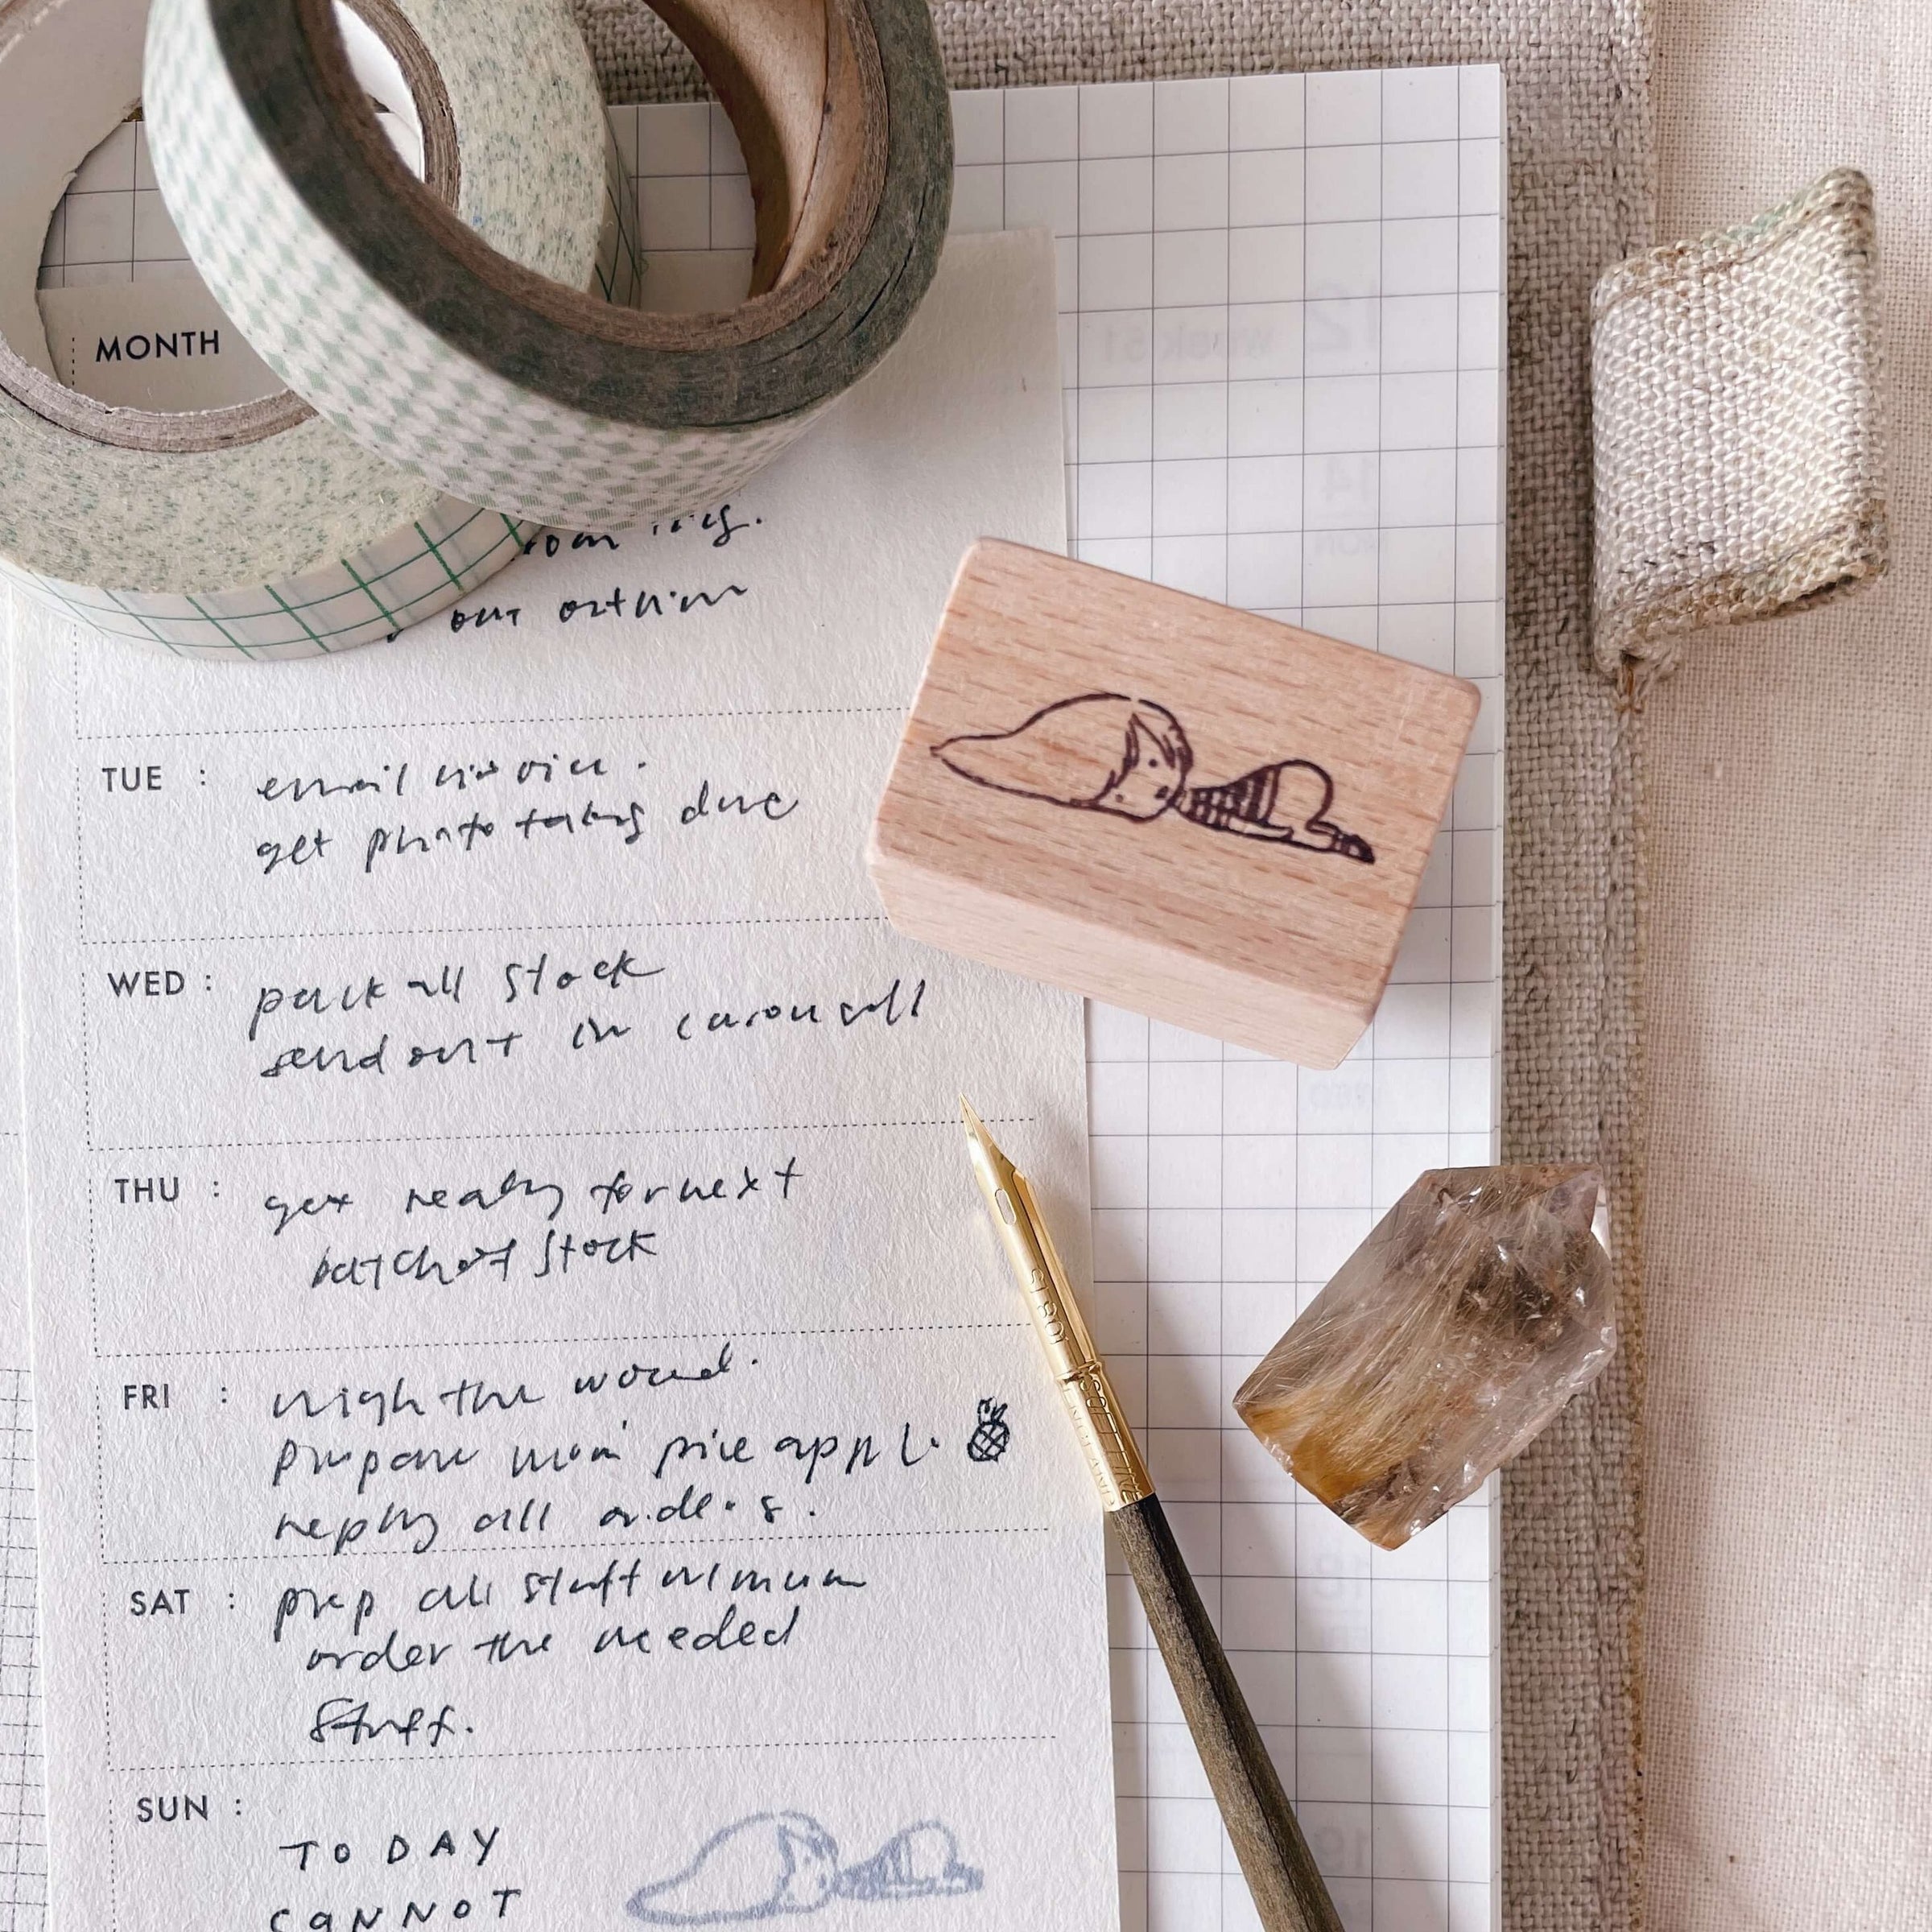 MONTH
out
TUE : email invoice.
get photo taking done
WED : pack all stock
send out in carousell
THU : get ready for next
batch of stock
FRI : weigh the wound.
prepare mom pineapple.
reply all orders.
SAT : prep all stuff
order the needed
stuff.
SUN :
TODAY
CANNOT
12 week 51
14
MON
WED
18
FRI
19